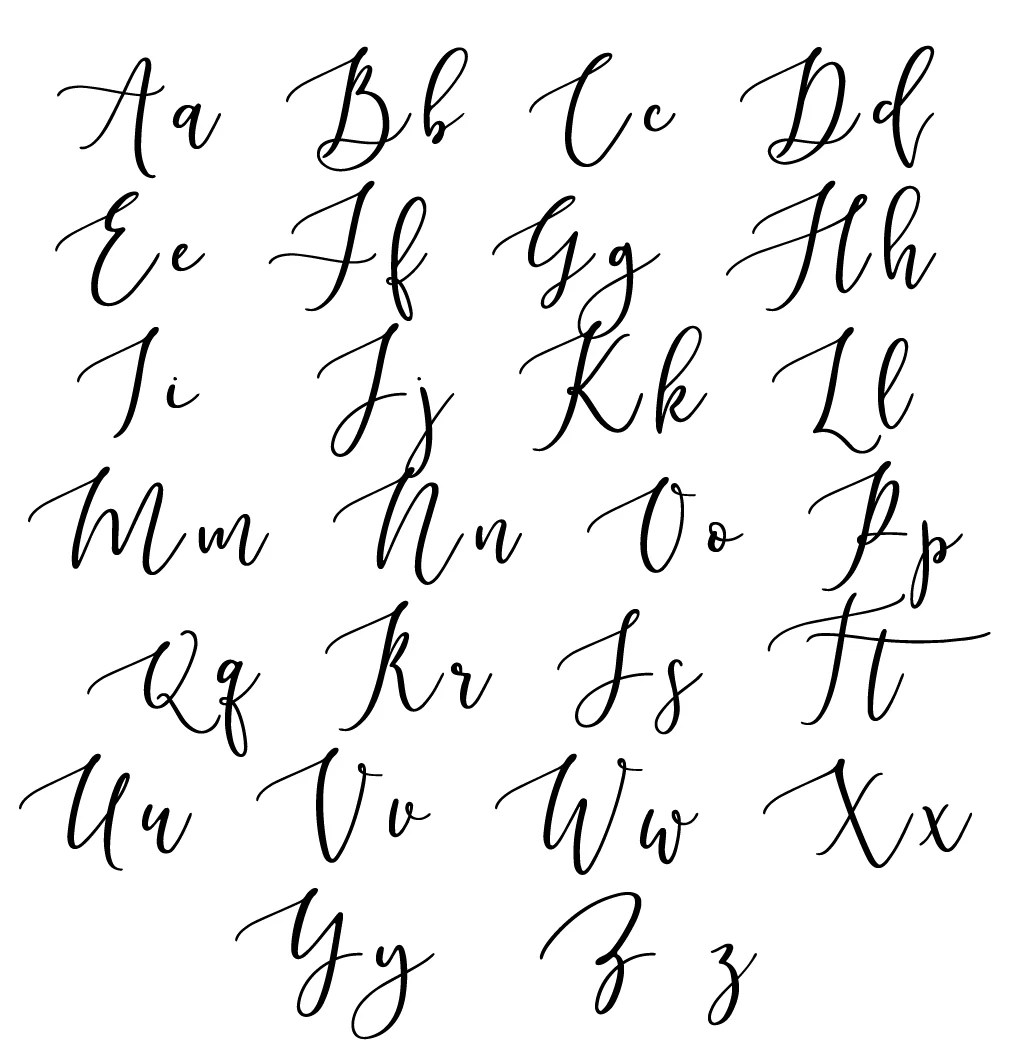 Aa Bb Cc Dd
Ee Ff Gg Hh
Ii Jj Kk Ll
Mm Nn Oo Pp
Qq Rr Ss Tt
Uu Vv Ww Xx
Yy Zz